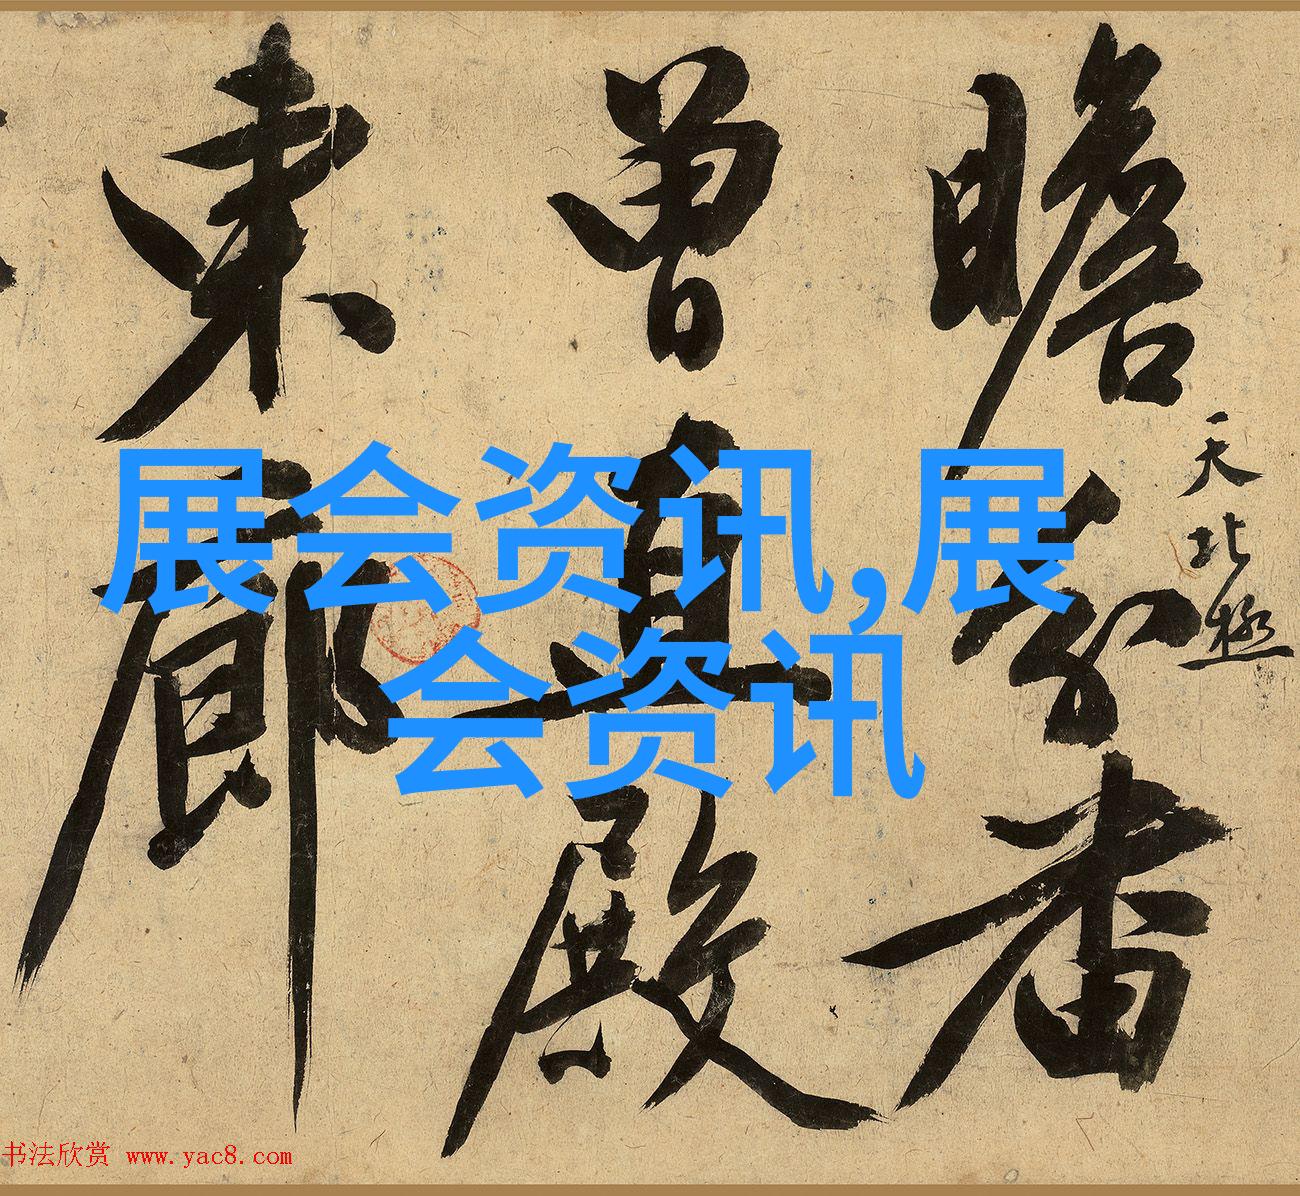 天北極
瞻
曾直殿
東廊
展会资讯,展
会资讯
书法欣赏 www.yac8.com